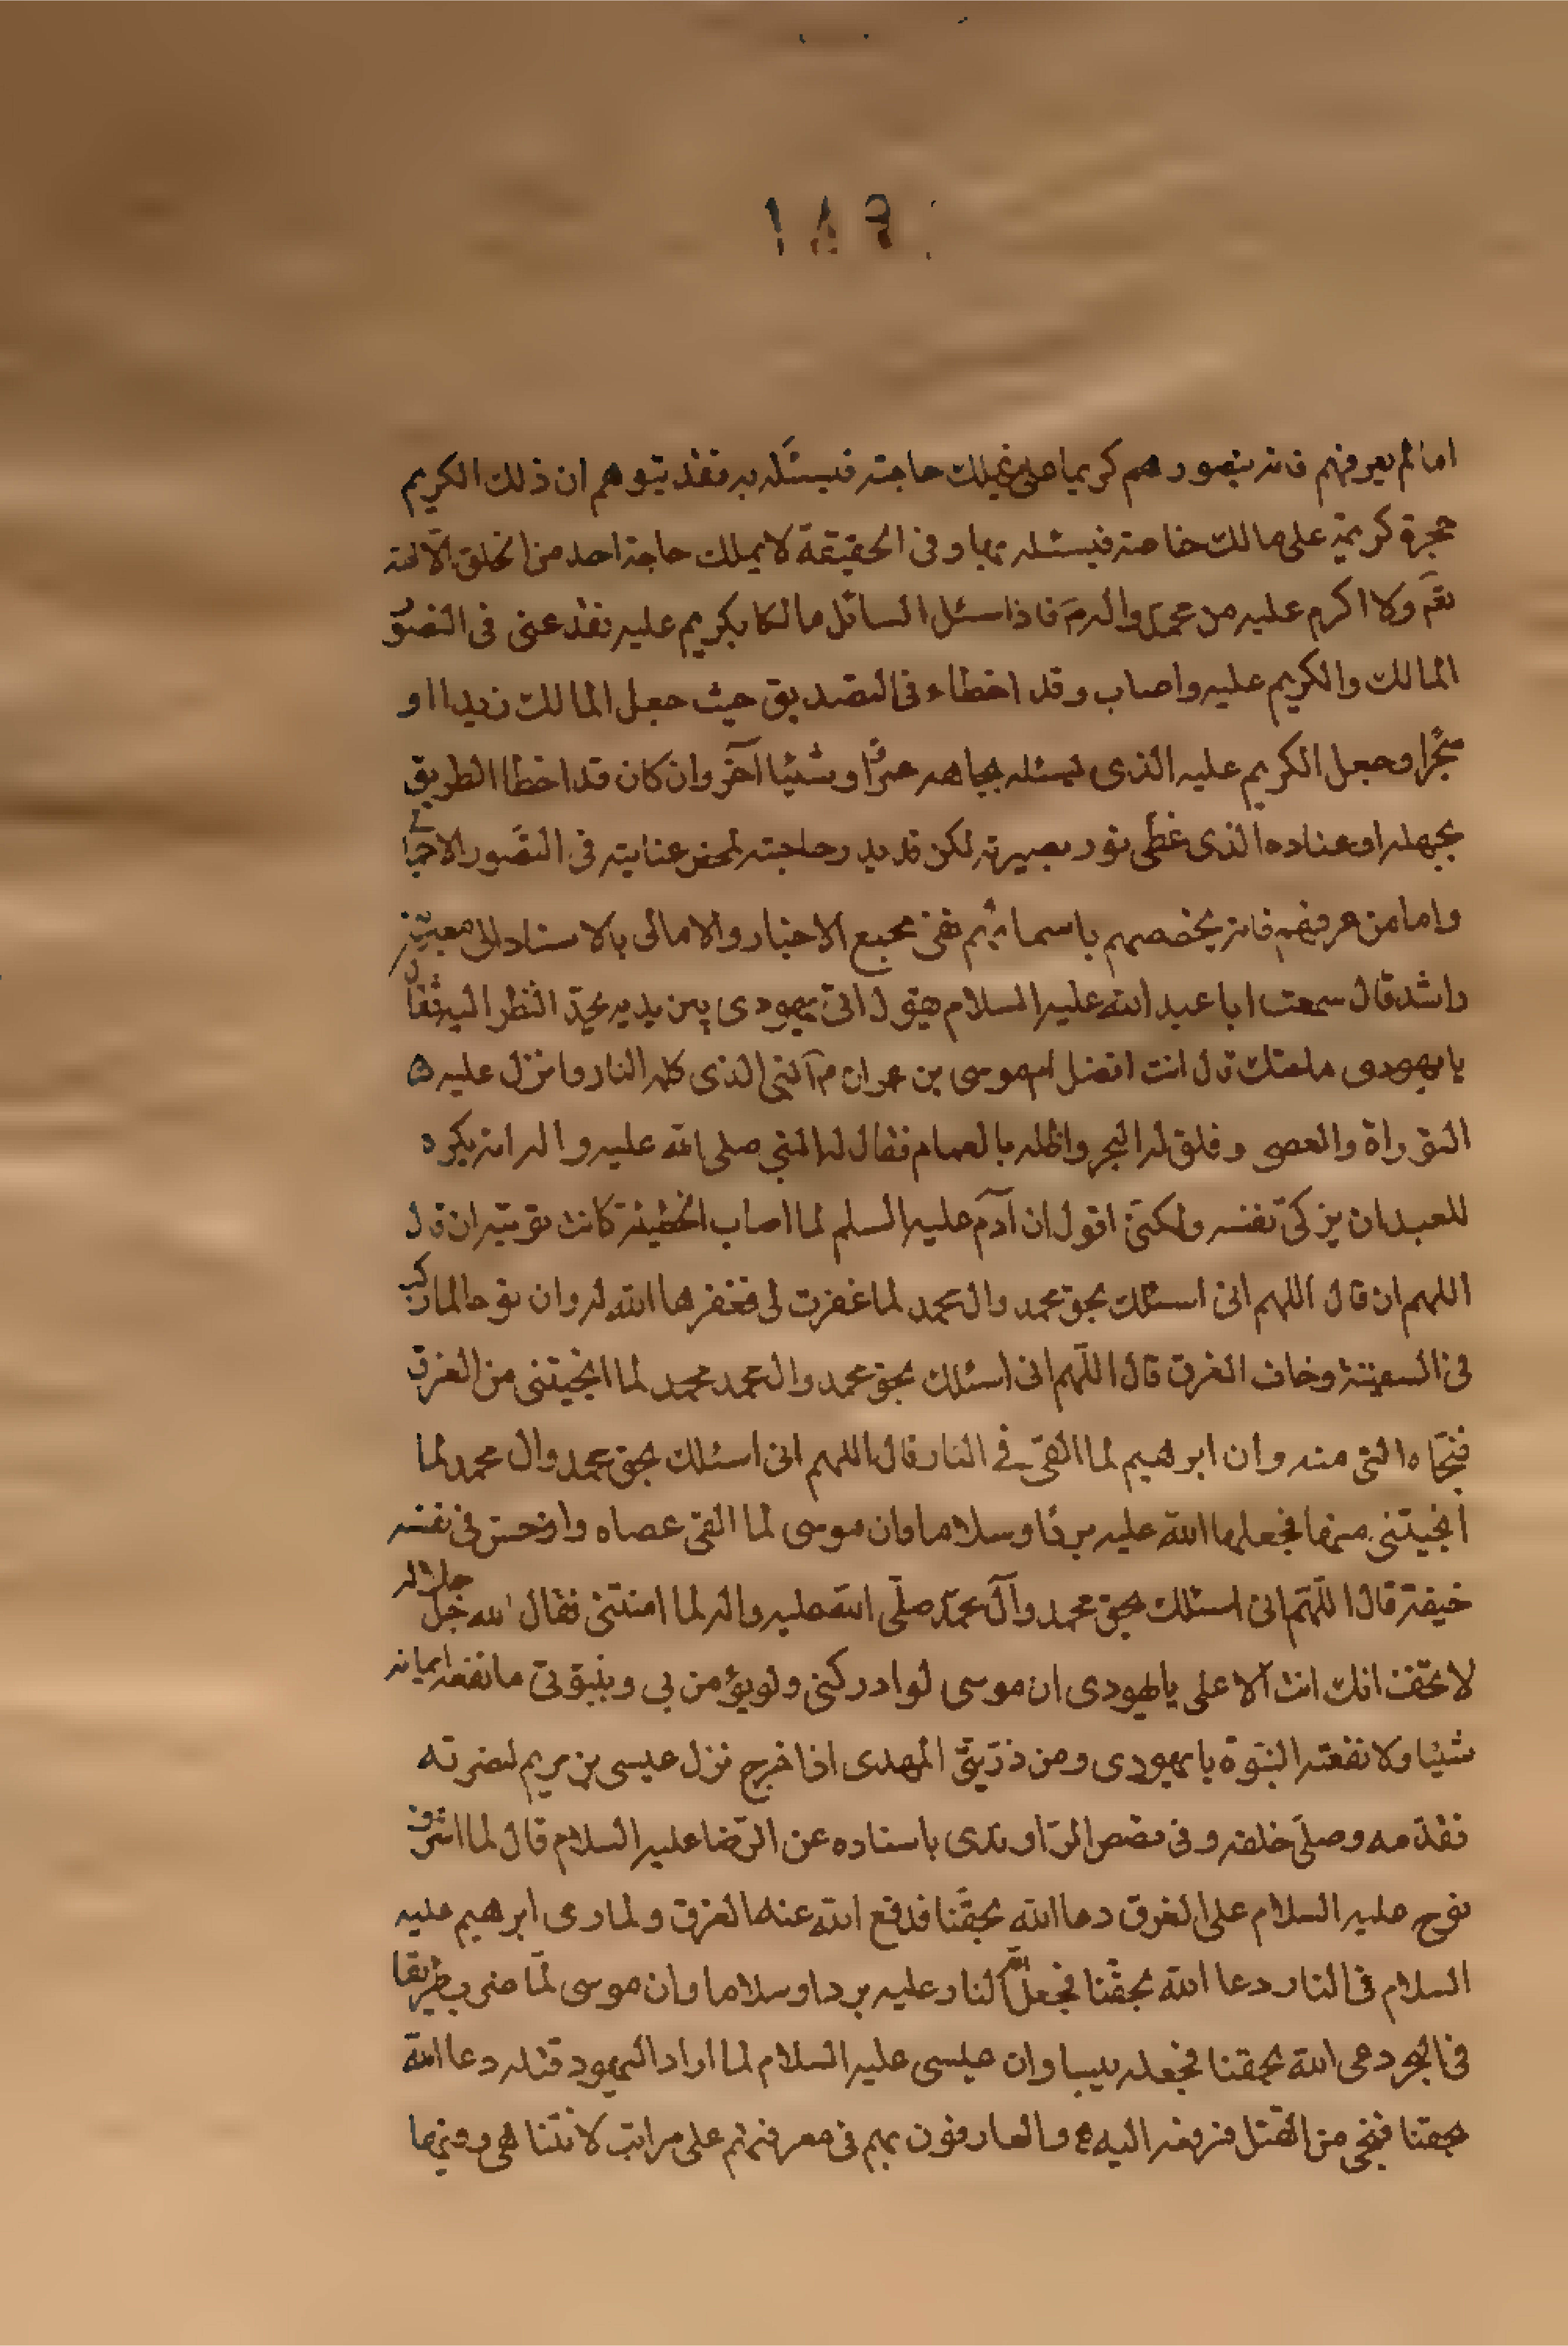 ١٨٩
اما لم يعرفهم فانه يتصورهم كريما على من يملك حاجته فيسئله به فقد يتوهم ان ذلك الكريم
حجرة كريمة على مالك خاصة فيسئله بها و فى الحقيقة لا يملك حاجة احد من الخلق الّا الله
تعَ ولا اكرم عليه من محمد واله مَ فاذا سئل السائل مالكا بكريم عليه فقد عنى فى التصوّر
المالك والكريم عليه واصاب وقد اخطاء فى التصديق حيث جعل المالك زيدا او
حجرًا وجعل الكريم عليه الذى يسئله بجاهه حرًّا وشيئا آخر وان كان قد اخطا الطريق
بجهله او عناده الذى غطى نور بصيرته لكن قد يدرك حاجته لمحض عنايته فى التصور الاجمالى
واما من عرفهم فانه يخصصهم باسمائهم ففى مجمع الاخبار والامالى بالاسناد الى معمر بن
راشد قال سمعت ابا عبد الله عليه السلام يقول اتى يهودى بين يديه يحدّ النظر اليه فقال
يا يهودى ما حاجتك قال انت افضل ام موسى بن عمران مَ النبى الذى كلمه الله وانزل عليه
التوراة والعصى وفلق له البحر واظله بالغمام فقال له النبي صلى الله عليه واله انه يكره
للعبد ان يزكىّ نفسه ولكنّى اقول ان آدم عليه السلم لما اصاب الخطيئة كانت توبته ان قال
اللهم ان قال اللهم انى اسئلك بحق محمد وال محمد لما غفرت لى فغفرها الله له وان نوحا لما ركب
فى السفينة وخاف الغرق قال اللّهم انى اسئلك بحق محمد وال محمد محمد لما انجيتنى من الغرق
فنجّاه الله منه وان ابرهيم لما القى فے النار قال اللهم انى اسئلك بحق محمد وال محمد لما
انجيتنى منها فجعلها الله عليه بردًا وسلاما وان موسى لما القى عصاه واوجس فى نفسه
خيفة قال اللّهمّ انى اسئلك بحق محمد وآل محمّد صلّى الله عليه واله لما امنتنى فقال الله جلّ جلاله
لا تخف انك انت الاعلى يا يهودى ان موسى لو ادركنى ولو يؤمن بى وبنبوّتى ما نفعه ايمانه
شيئا ولا نفعته النبوّة يا يهودى ومن ذرّيتى المهدى اذا خرج نزل عيسى بن مريم لنصرته
فقدّمه وصلّى خلفه وفى قصص الرّاوندى باسناده عن الرّضا عليه السلام قال لما اشرف
نوح عليه السلام على الغرق دعا الله بحقّنا فدفع الله عنه الغرق ولما رمى ابرهيم عليه
السلام فى النار دعا الله بحقّنا فجعل الله النار عليه بردا وسلاما وان موسى لمّا ضرب طريقا
فى البحر دعى الله بحقنا فجعله يبسا وان عيسى عليه السلام لما اراد اليهود قتله دعا الله
بحقنا فنجى من القتل فرفعه اليه والعارفون بهم فى معرفتهم على مراتب لا تتناهى ومنها